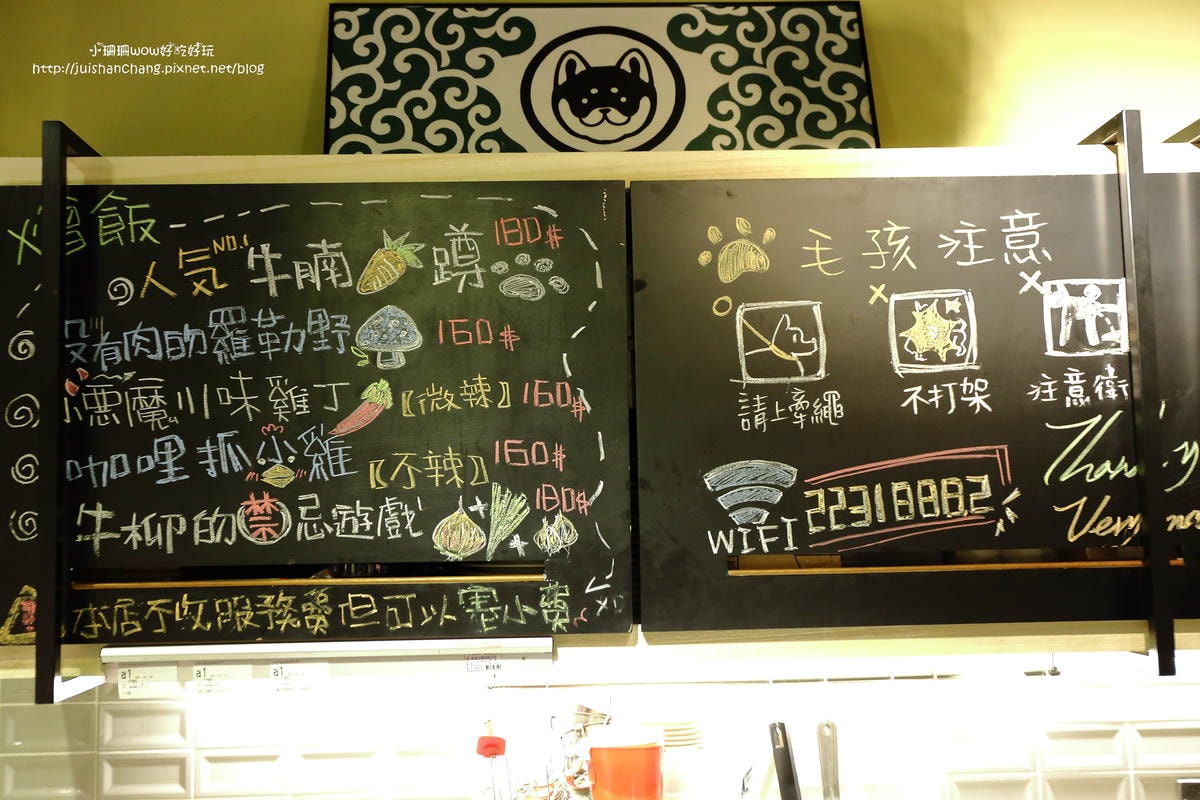 小珊珊wow好吃好玩
http://juishanchang.pixnet.net/blog
燉飯
人気NO.1 牛腩 蹲 180$
沒有肉的羅勒野 160$
小悪魔川味雞丁【微辣】160$
咖哩抓小雞【不辣】160$
牛柳的禁忌遊戲 180$
本店不收服務費但可以塞小費
XD
毛孩注意
請上牽繩
不打架
注意衛
WIFI 22318882
Very
a1
a1
a1